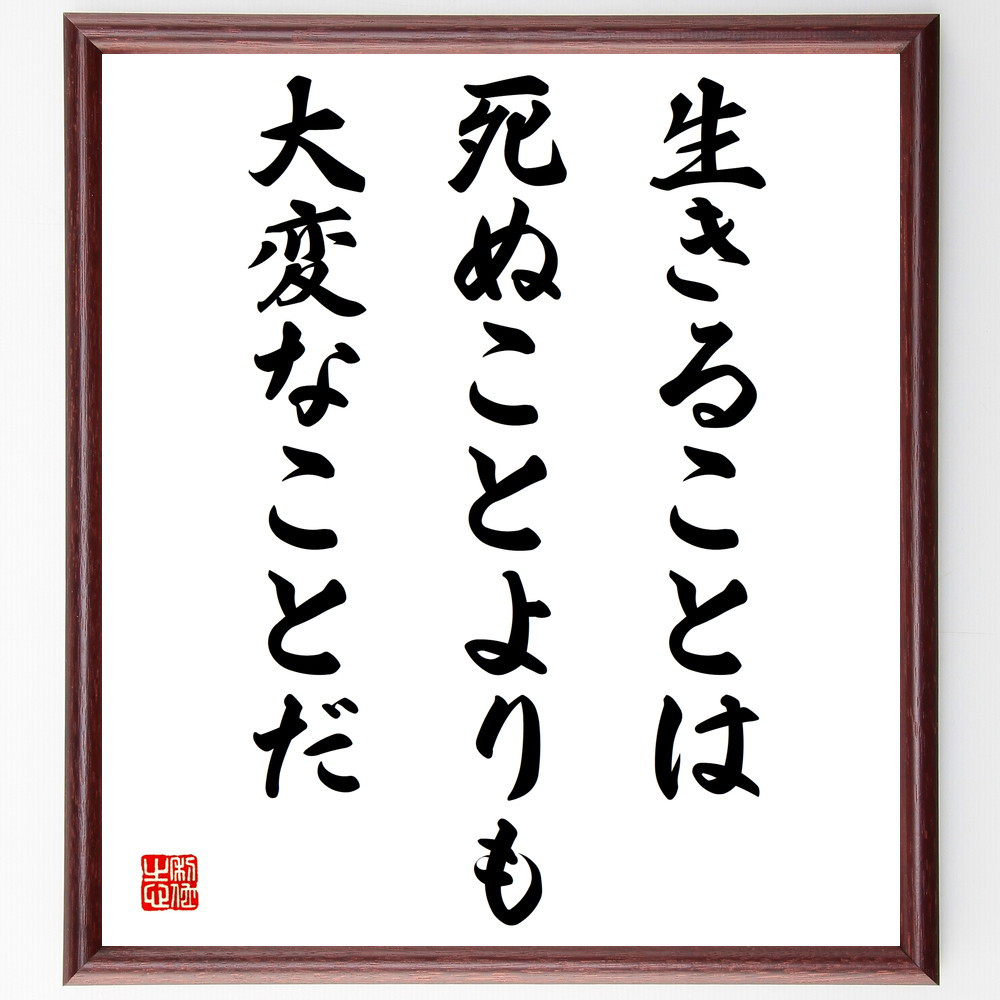 生きることは
死ぬことよりも
大変なことだ